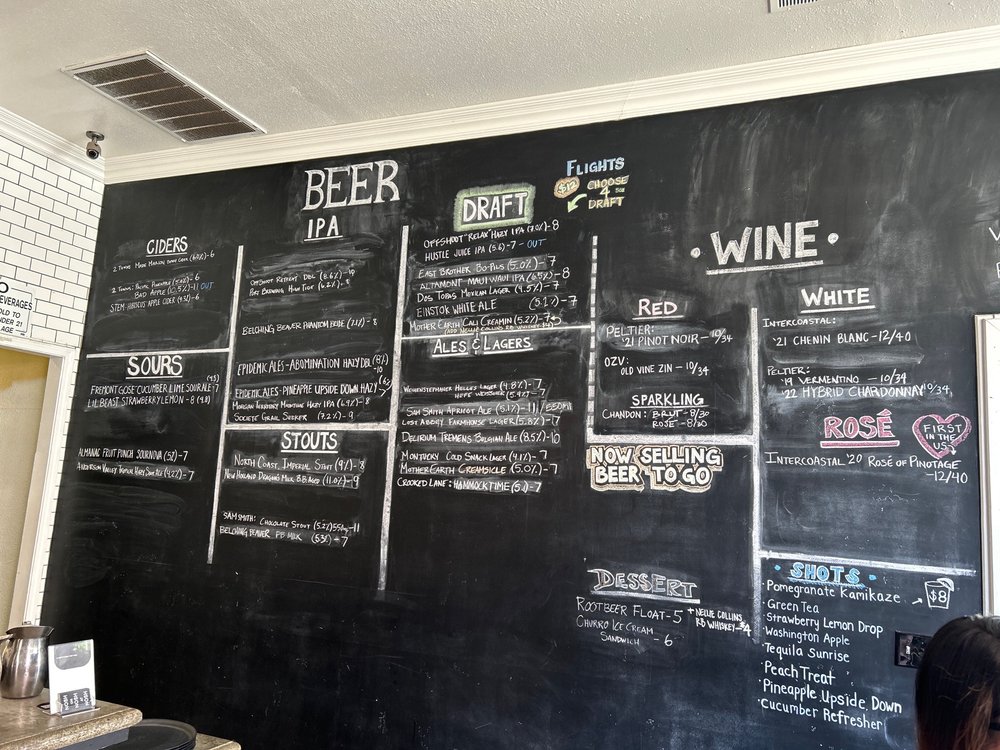 BEER
IPA
CIDERS
2 Towns
6
2 Towns: Pacific Pineapple
6
Bad Apple
11 OUT
STEM: HIBISCUS APPLE CIDER
6
SOURS
FREMONT GOSE "CUCUMBER LIME SOUR ALE - 7
LIL BEAST STRAWBERRY LEMON - 8
ALMANAC FRUIT PUNCH SOURNOVA (5%) - 7
Anderson Valley Tropical Hazy Sour Ale (4.2%) - 7
OFFSHOOT RETREAT DBL (8.6%)
Port Brewing High Tide (6.2%) - 8
BELCHING BEAVER PHANTOM BRIDE (7.1%) - 8
EPIDEMIC ALES - ABOMINATION HAZY DBL
10
EPIDEMIC ALES - PINEAPPLE UPSIDE DOWN HAZY
7
MORGAN TERRITORY
HAZY IPA (6.9%) - 8
SOCIETE GRAIL SEEKER (7.2%) - 9
STOUTS
NORTH COAST, IMPERIAL STOUT (9%) - 8
NEW HOLLAND DRAGONS MILK B.B AGED (11.0%) - 9
SAM SMITH: CHOCOLATE STOUT
11
BELCHING BEAVER PB MILK (5.3%) - 7
DRAFT
FLIGHTS
$12 CHOOSE
4 FOR
DRAFT
OFFSHOOT "RELAX" HAZY IPA (7.0%) - 8
HUSTLE JUICE IPA (5.6) - 7 - OUT
EAST BROTHER BO-PILS (5.0%) - 7
ALTAMONT MAUI WAUI IPA (6.5%) - 8
DOS TOROS MEXICAN LAGER (4.5%) - 7
EINSTOK WHITE ALE (5.2%) - 7
MOTHER EARTH CALI CREAMIN (5.2%) - 7
(ADD NELLIE COLLINS RB WHISKEY
ALES & LAGERS
WEIHENSTEPHANER HELLES LAGER (4.8%) - 7
HEFE WEISSBIER (5.4%) - 7
SAM SMITH APRICOT ALE (5.1%) - 11 / 550ml
LOST ABBEY FARMHOUSE LAGER (5.8%) - 7
DELIRIUM TREMENS BELGIAN ALE (8.5%) - 10
MONTUCKY COLD SNACK LAGER (4.1%) - 7
MOTHER EARTH CREAMSICLE (5.0%) - 7
CROOKED LANE: HAMMOCK TIME (5.1) - 7
• WINE •
RED
PELTIER:
'21 PINOT NOIR - 10/34
OZV:
OLD VINE ZIN - 10/34
SPARKLING
CHANDON: BRUT - 8/30
ROSE - 8/30
NOW SELLING
BEER TO GO
WHITE
INTERCOASTAL:
'21 CHENIN BLANC - 12/40
PELTIER:
'19 VERMENTINO - 10/34
'22 HYBRID CHARDONNAY 10/34
ROSÉ
FIRST
IN THE
US!
INTERCOASTAL '20 ROSÉ OF PINOTAGE
- 12/40
DESSERT
ROOTBEER FLOAT - 5
+ NELLIE COLLINS
RB WHISKEY - $4
CHURRO ICE CREAM
SANDWICH - 6
• SHOTS •
$8
• Pomegranate Kamikaze
• Green Tea
• Strawberry Lemon Drop
• Washington Apple
• Tequila Sunrise
• Peach Treat
• Pineapple Upside Down
• Cucumber Refresher
BEVERAGES
OLD TO
NDER 21
AGE